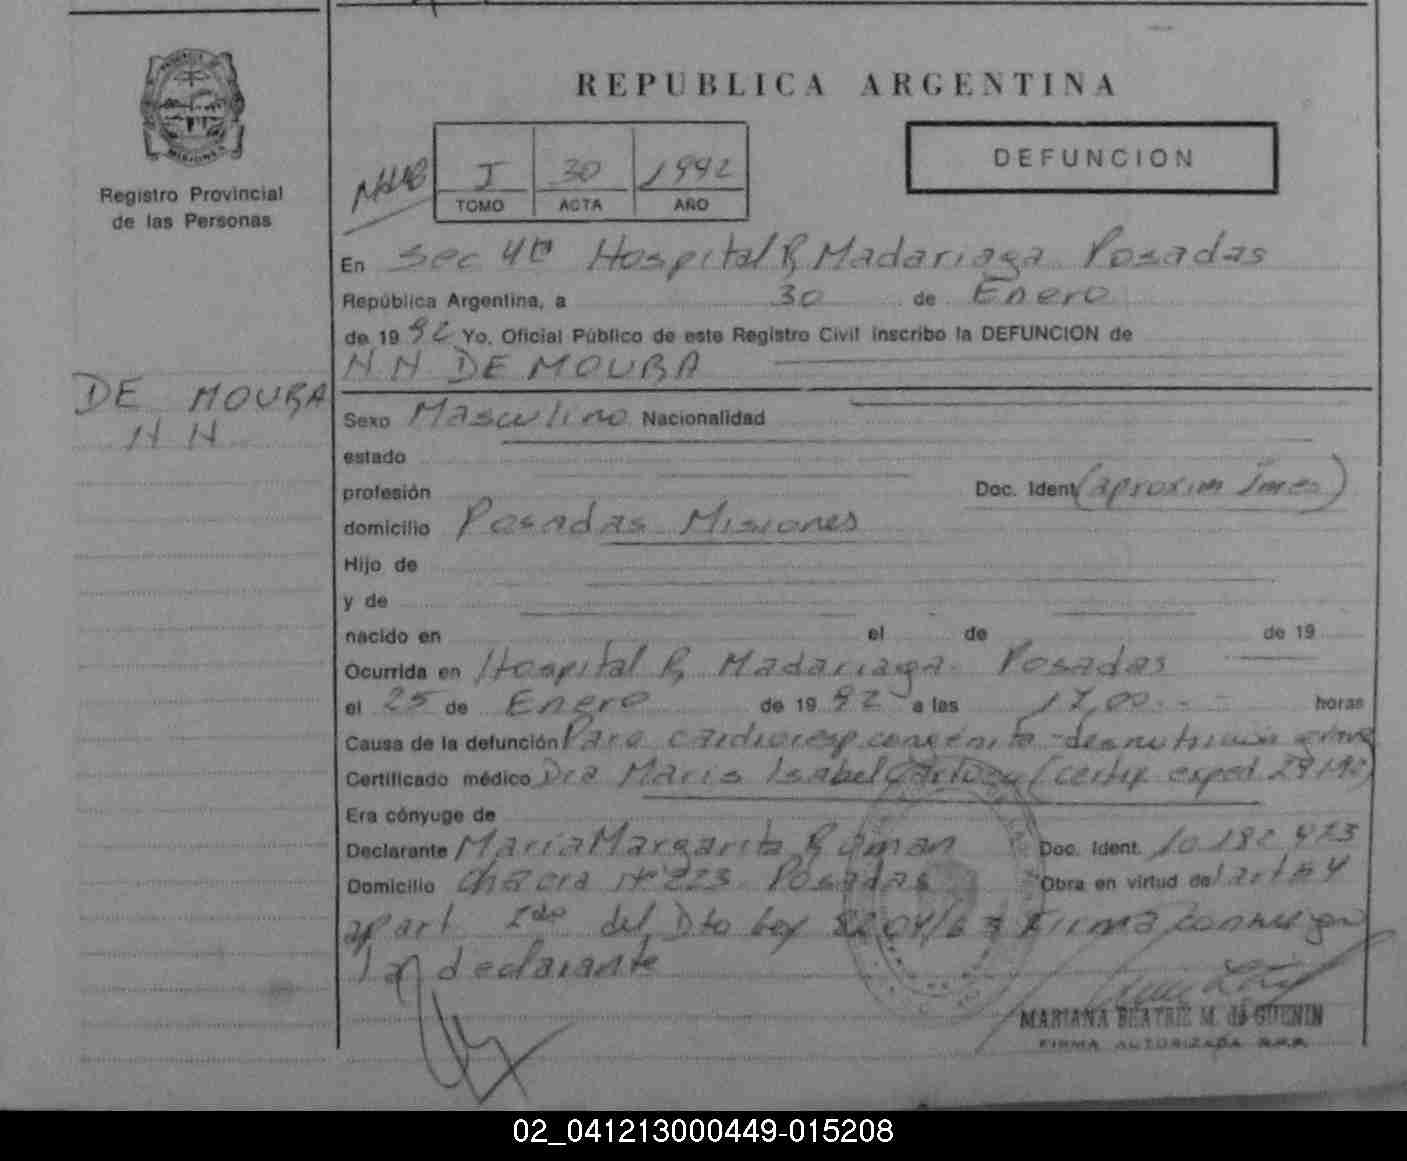 REPUBLICA ARGENTINA
MISIONES
Registro Provincial
de las Personas
I 30 1992
TOMO ACTA AÑO
DEFUNCION
En Sec 4ta Hospital R, Madariaga Posadas
República Argentina, a 30 de Enero
de 19 92 Yo, Oficial Público de este Registro Civil inscribo la DEFUNCION de
N N DE MOURA
DE MOURA
N N
Sexo Masculino Nacionalidad
estado
profesión Doc. Ident (aproxim 1 mes)
domicilio Posadas Misiones
Hijo de
y de
nacido en el de de 19
Ocurrida en Hospital R, Madariaga. Posadas
el 25 de Enero de 19 92 a las 17,00.- - horas
Causa de la defunción Paro cardioresp congénito - desnutrición grave
Certificado médico Dra Maris Isabel (certif exped
Era cónyuge de
Declarante María Margarita Roman Doc. Ident. 10 182 423
Domicilio Chacra Nº 223 Posadas Obra en virtud del art 54
apart 2do del Dto Ley 8204/63 Firma
la declarante
MARIANA BEATRIZ M. de GUENIN
FIRMA AUTORIZADA R.P.P.
02_041213000449-015208